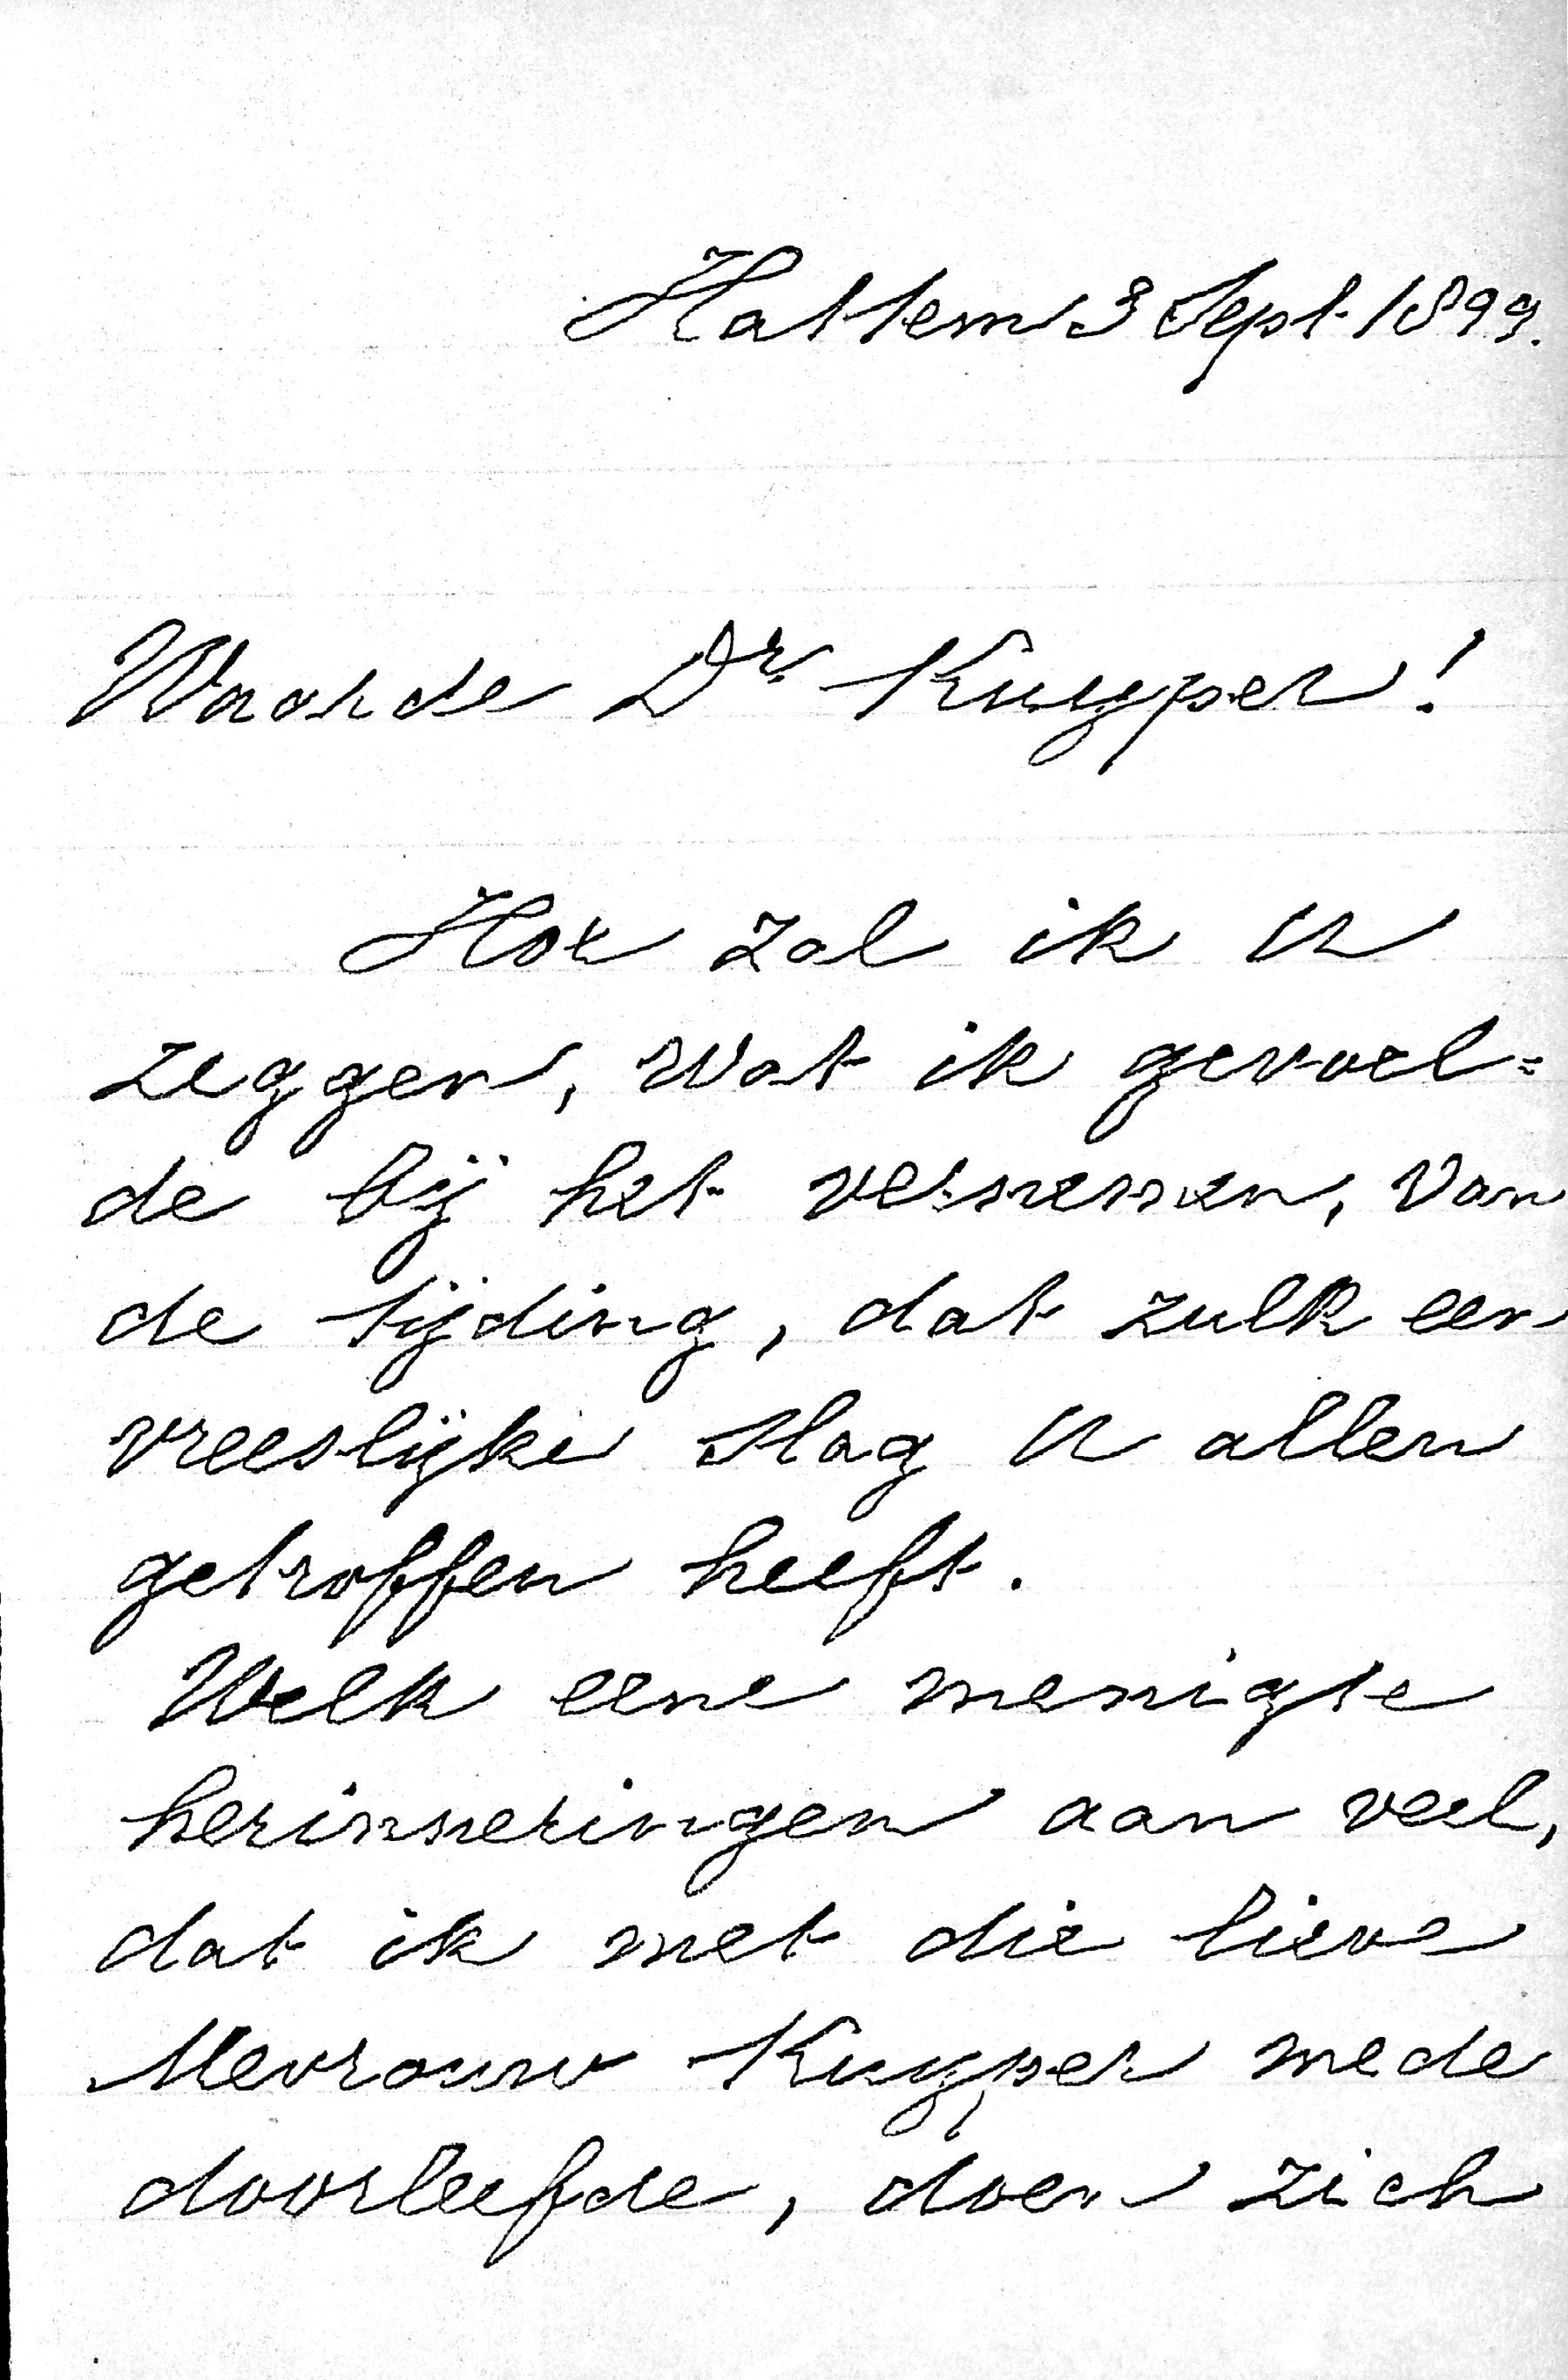 Hattem 3 Sept 1899.
Waarde Dr. Kuyper!
Hoe zal ik U
zeggen, wat ik gevoel=
de bij het vernemen, van
de tijding, dat zulk een
vreeslijke slag U allen
getroffen heeft.
Welk eene menigte
herinneringen aan veel,
dat ik met die lieve
Mevrouw Kuyper mede
doorleefde, doen zich